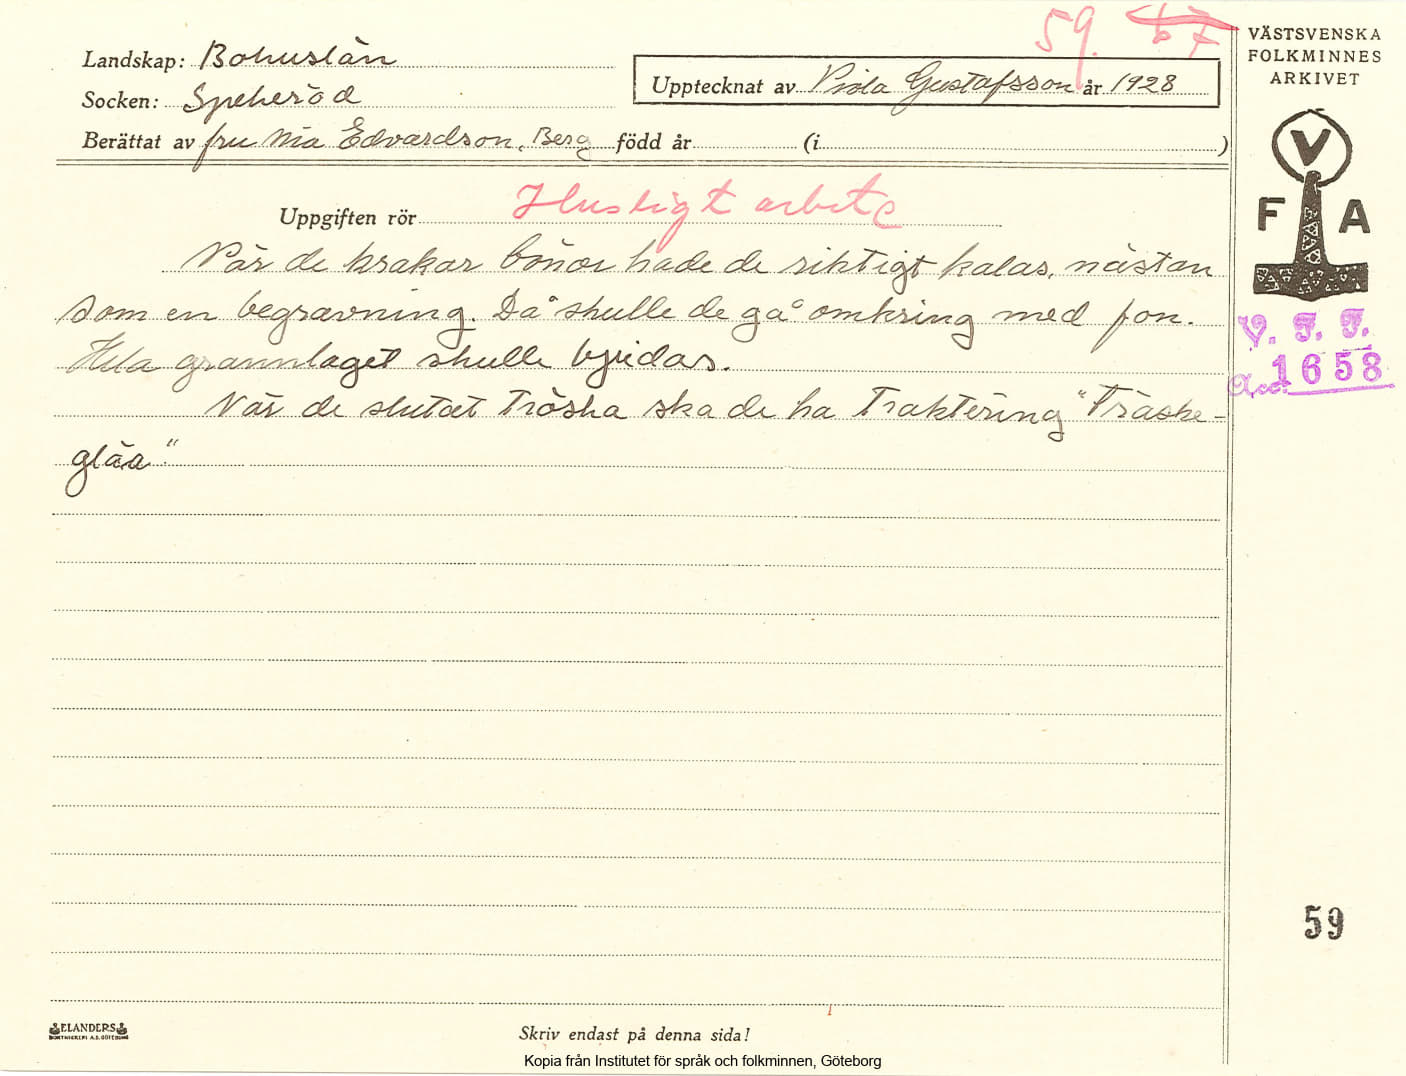 59. 67
VÄSTSVENSKA
FOLKMINNES
ARKIVET
Landskap: Bohuslän
Upptecknat av Viola Gustafsson år 1928
Socken: Spekeröd
Berättat av fru Mia Edvardson, Berg född år (i )
V
F A
Uppgiften rör Husligt arbete
När de krakar bönor hade de riktigt kalas, nästan
som en begravning. Då skulle de gå omkring med fon.
Hela grannlaget skulle bjudas.
När de slutat tröska ska de ha traktering "Tröske-
gläa"
V. F. F.
Acc. 1658
59
ELANDERS
BOKTRYCKERI A.B. GÖTEBORG
Skriv endast på denna sida!
Kopia från Institutet för språk och folkminnen, Göteborg